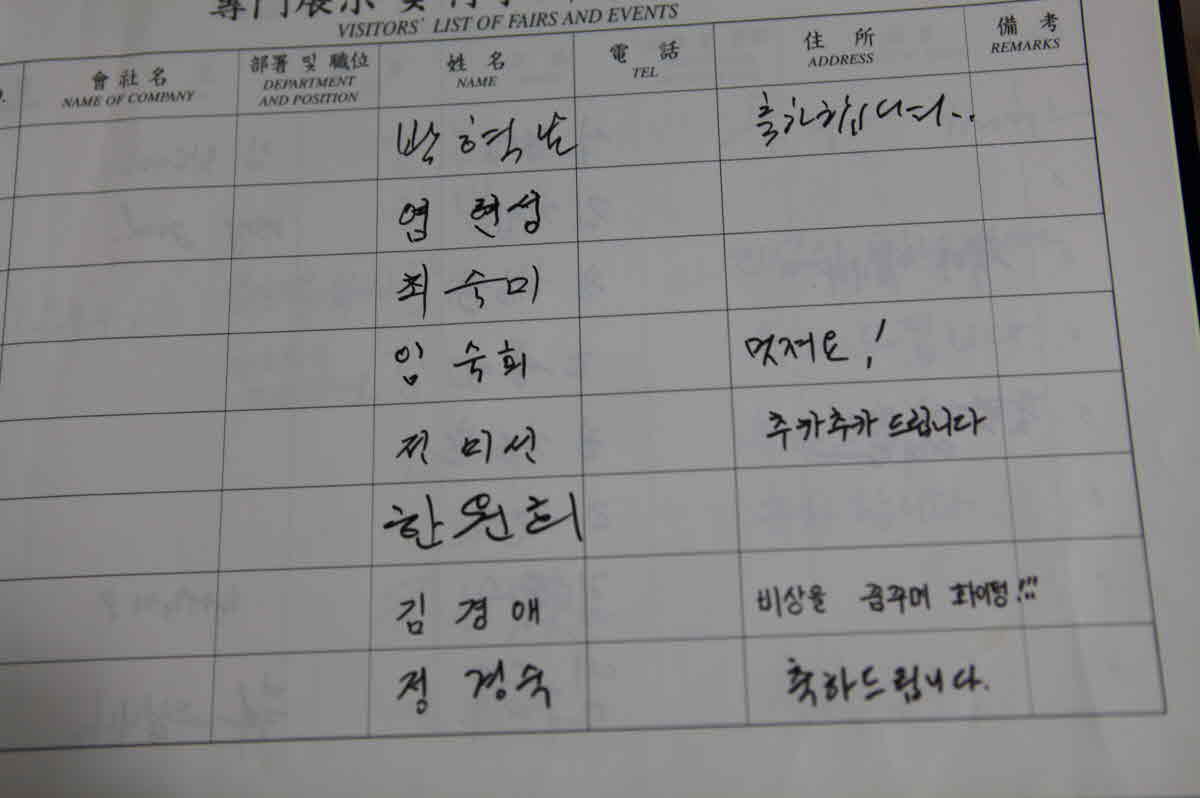 專門展示 및
VISITORS' LIST OF FAIRS AND EVENTS
會社名 部署 및 職位 姓名 電話 住所 備考
NAME OF COMPANY DEPARTMENT AND POSITION NAME TEL ADDRESS REMARKS
박혁남 축하합니다..
엽현성
최숙미
임숙희 멋져요!
전미선 추카추카 드립니다
한원희
김경애 비상을 꿈꾸며 화이팅!!!
정경숙 축하드립니다.